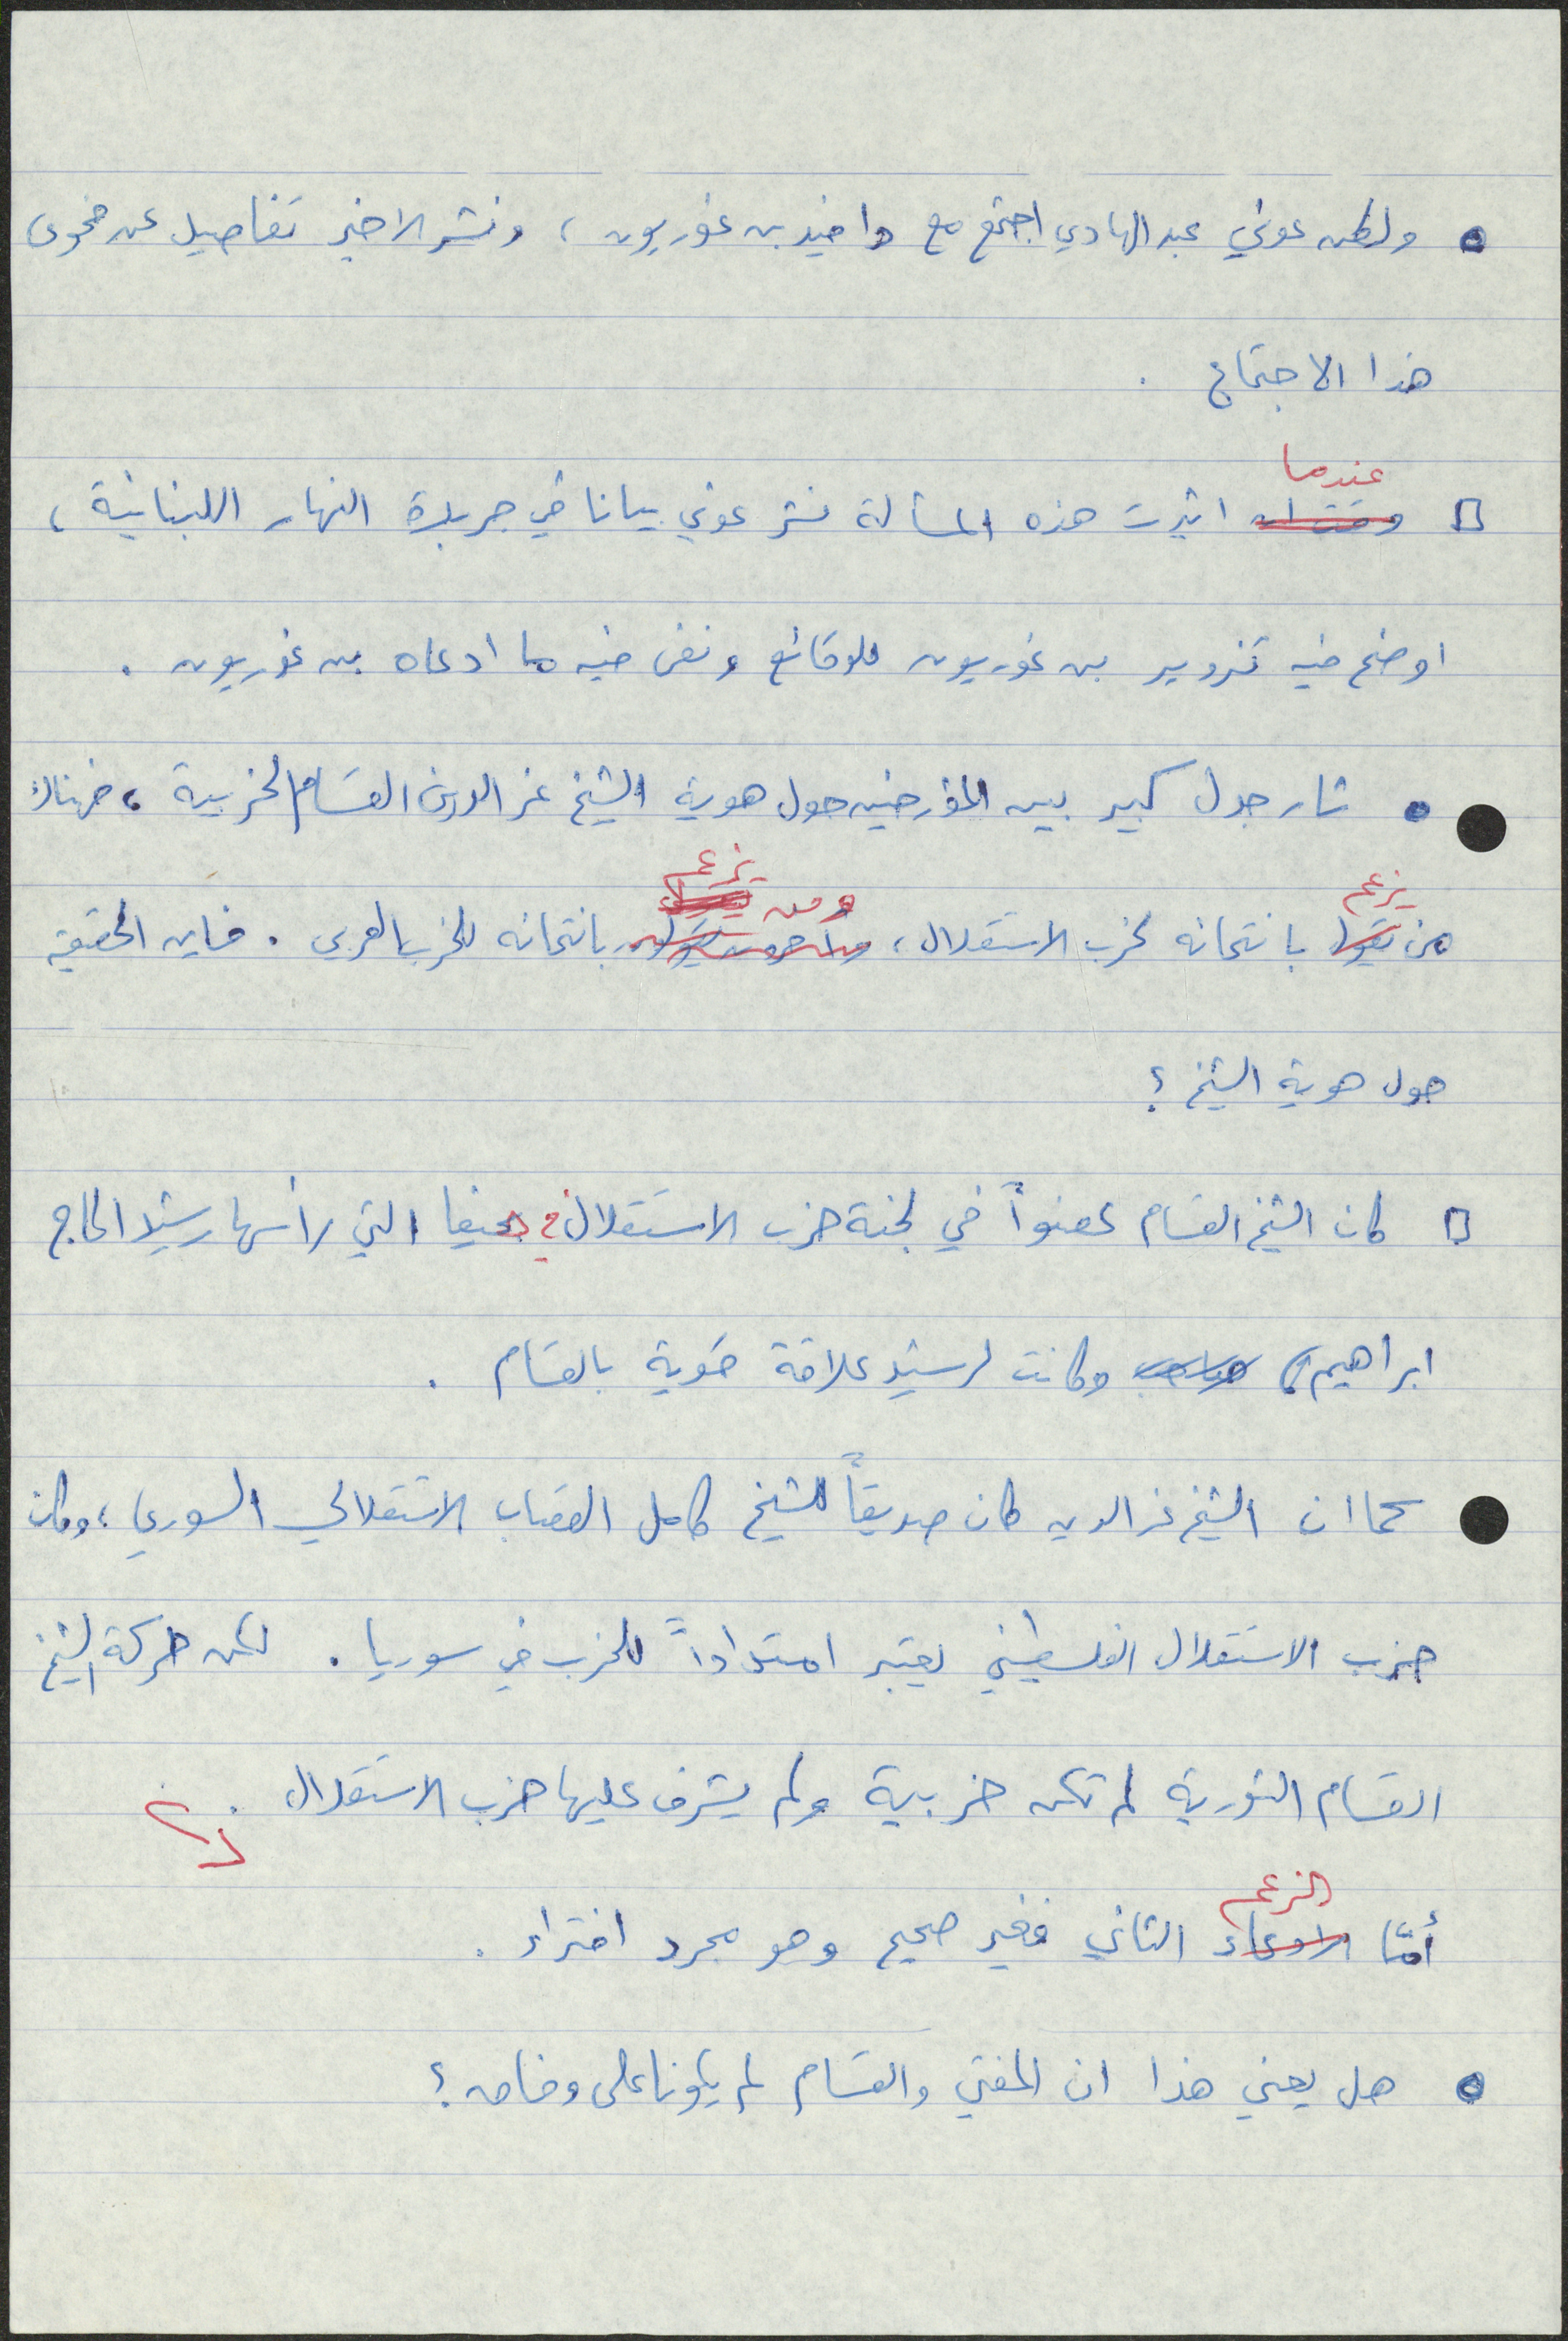 • ولكن عوني عبد الهادي اجتمع مع دافيد بن غوريون ، ونشر الاخير تفاصيل عن فحوى
هذا الاجتماع .
عندما
□ اثيرت هذه المسألة نشر عوني بيانا في جريدة النهار اللبنانية ،
اوضح فيه تزوير بن غوريون للوقائع ونفى فيه ما ادعاه بن غوريون .
• ثار جدل كبير بين المؤرخين حول هوية الشيخ عز الدين القسّام الحزبية ، فهناك
يزعم ومن يزعم
من يقول بانتمائه لحزب الاستقلال ، بانتمائه للحزب العربي . فاين الحقيقة
حول هوية الشيخ ؟
□ كان الشيخ القسام عضواً في لجنة حزب الاستقلال في حيفا التي رأسها رشيد الحاج
ابراهيم وكانت لرشيد علاقة قوية بالقسّام .
كما ان الشيخ عز الدين كان صديقاً للشيخ كامل القصاب الاستقلالي السوري ، وكان
حزب الاستقلال الفلسطيني يعتبر امتداداً للحزب في سوريا . لكن حركة الشيخ
القسام الثورية لم تكن حزبية ولم يشرف عليها حزب الاستقلال .
الزعم
أمّا الادعاء الثاني فغير صحيح وهو مجرد افتراء .
• هل يعني هذا ان المفتي والقسّام لم يكونا على وفاق ؟